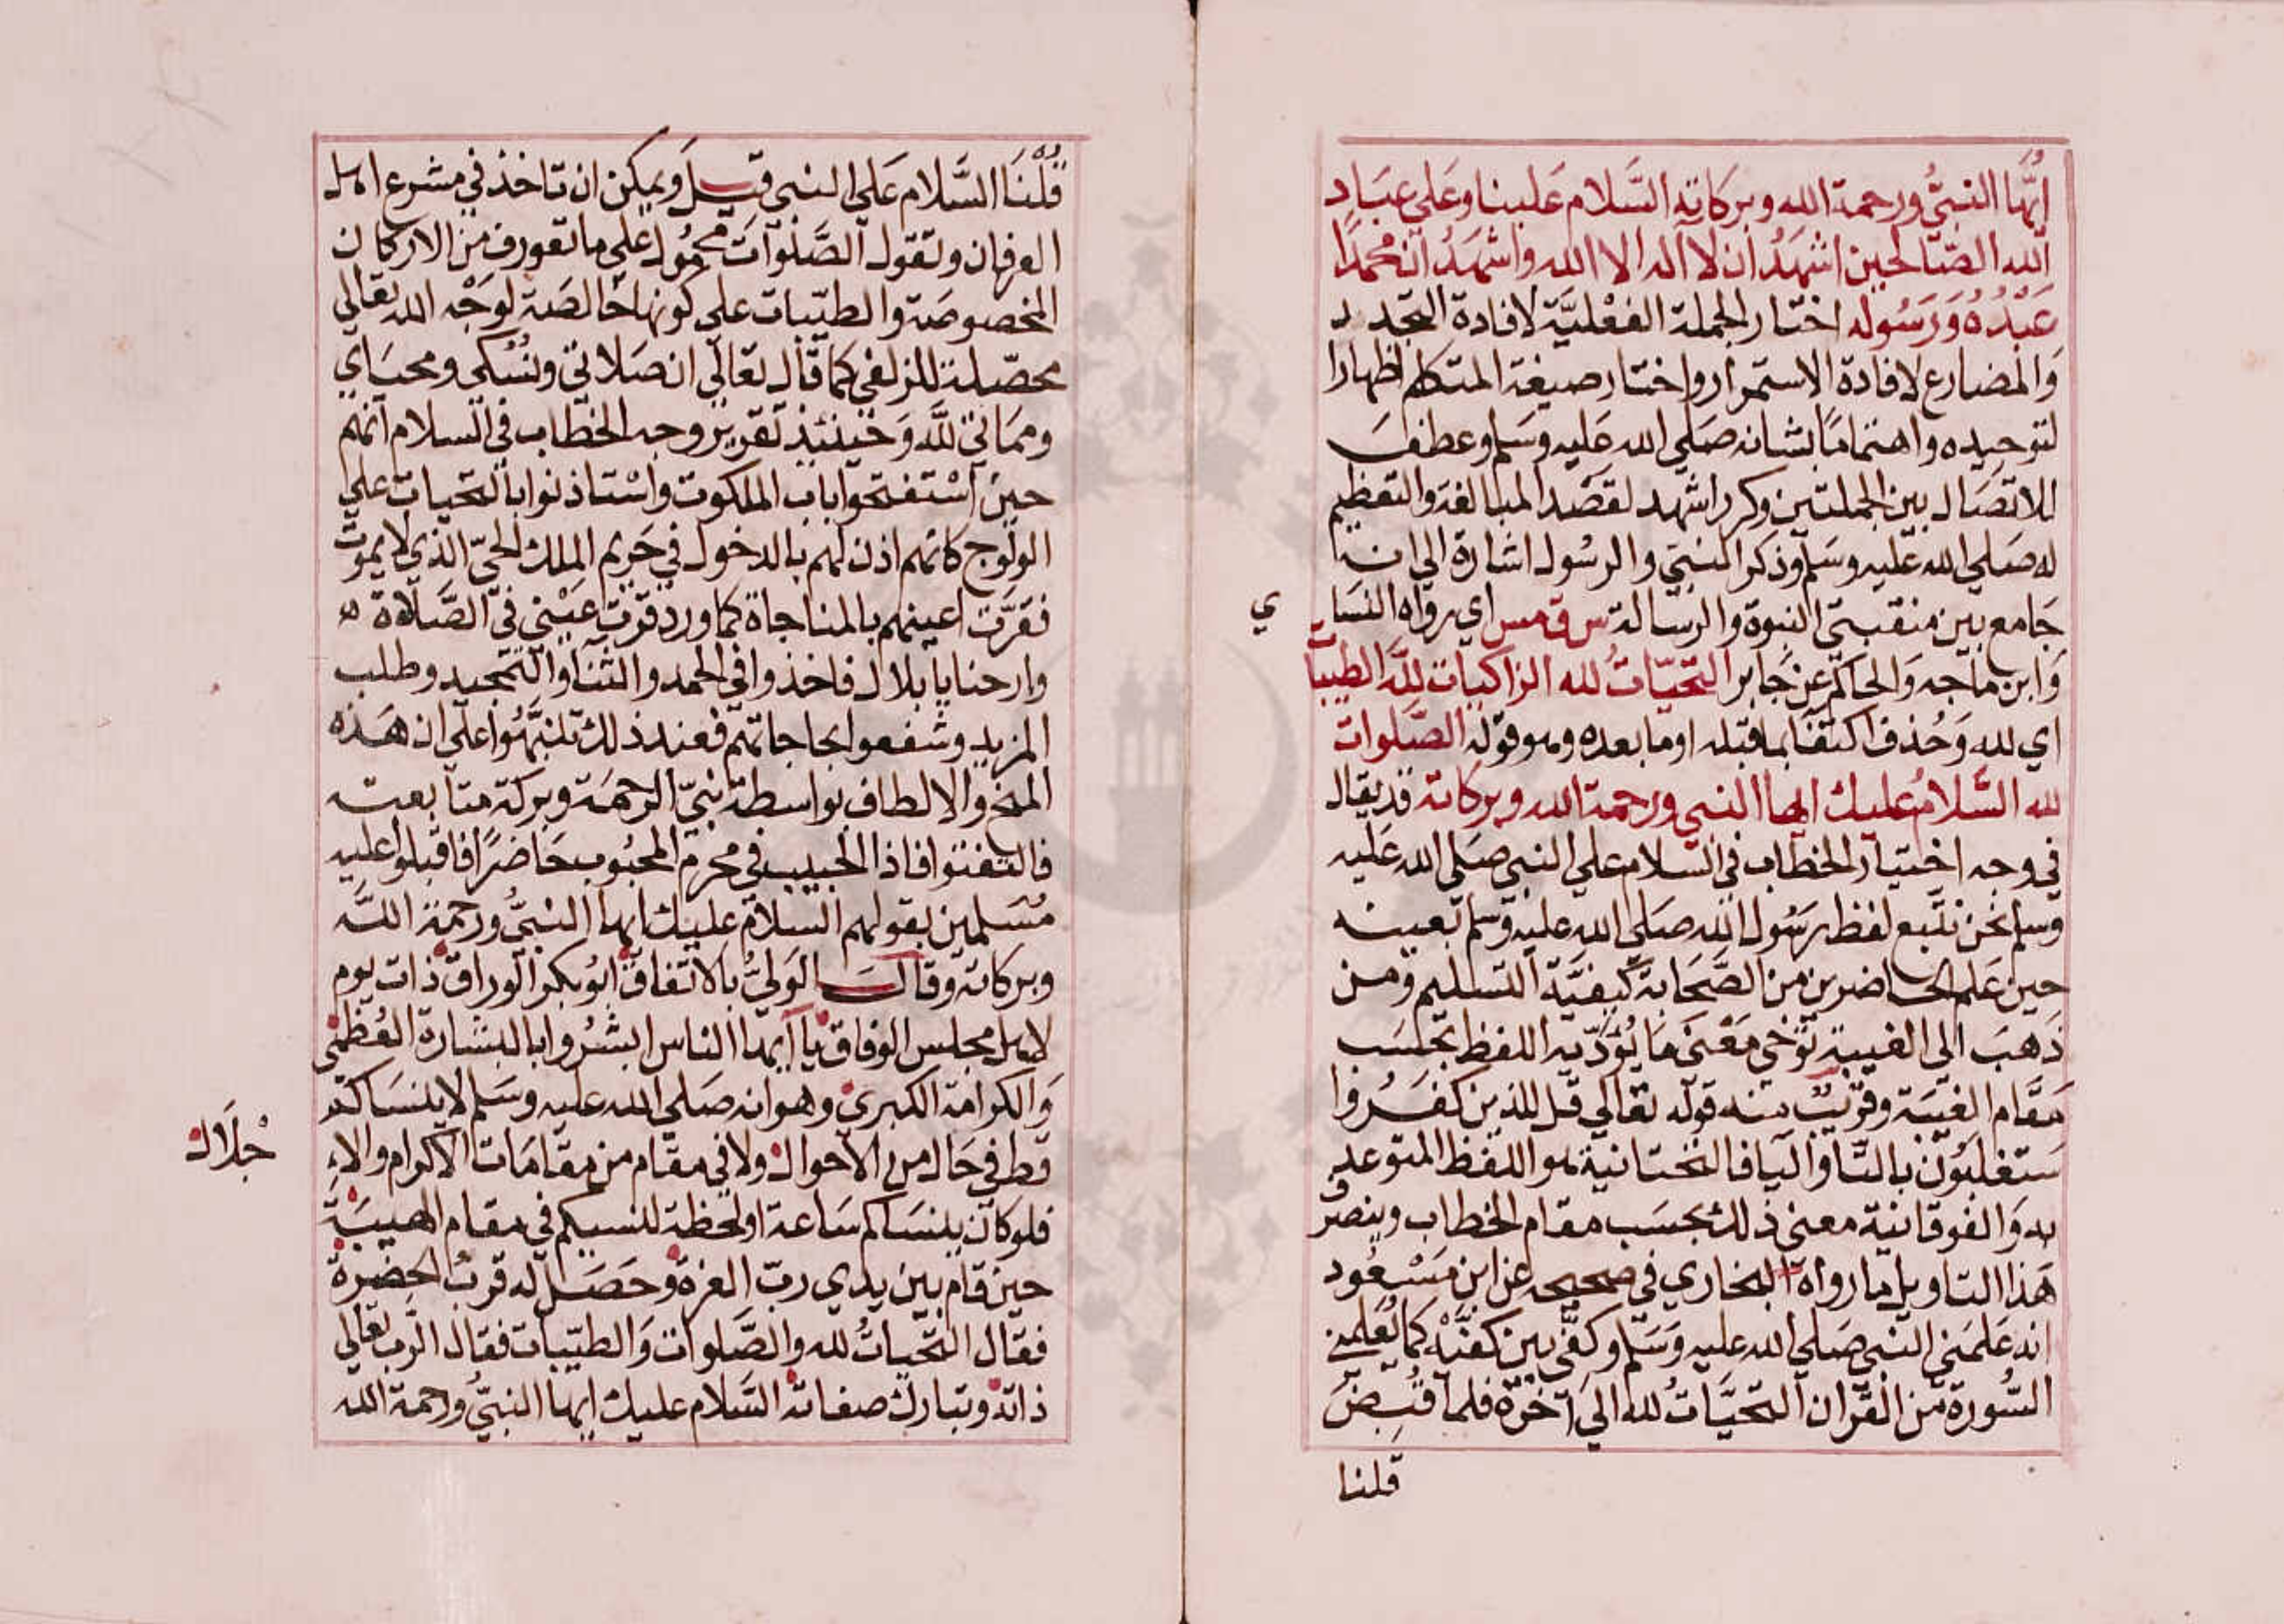 ايُّها النبيُّ ورحمة الله وبركاته السَّلام علينا وعلى عبَاد
الله الصّالحين اشهَدُ ان لا اله الا الله واشهَدُ انّ محمدًا
عَبْدُهُ وَرَسُوله اختار الجملة الفعْليَّة لافادة التجدد
وَالمضارع لافادة الاستمرار واختار صيغة المتكلم اظهارا
لتوحيده واهتمامًا بشانه صَلي الله عَليه وسَلم وعطفَ
للاتصَال بين الجملتين وكرر اشهد لقصْد المبالغة والتعظيم
له صَلي الله عليه وسَلم وذكر النبيّ والرسُول اشارة الي انه
جَامع بين منقبتي النبوة والرسالة س ق مس اي رواه النسَاي
وَابن ماجه وَالحاكم عن جَابر التحيّاتُ لله الزاكيات للّه الطيبات
اي لله وَحُذف اكتفا بما قبله او ما بعده وهو قوله الصَّلوات
لله السَّلامُ عليك ايها النبي ورحمة الله وبركاته قد يقال
في وجه اختيار الخطاب في السّلام علي النبي صَلي الله عَليه
وسلم نحن نتّبع لفظ رسُول الله صَلي الله عليه وَسلم بعينه
حين عَلم الحاضرين من الصَّحَابة كيفيَّة التسليم ومن
ذهَبَ الي الغيبة توخي مَعْنى مَا يُؤدّيه اللفظ بحسَب
مقَام الغيبَة وقريبٌ منه قوله تعالي قل للذين كفَرُوا
ستغلبُون بالتّا واليا فالتحتانية هو اللفظ المتوعد
به وَالفوقانية معني ذلك بحسَب مقام الخطاب وينصر
هَذا التاويل ما رواه البخاري في صحيحه عن ابن مَسْعُود
انه عَلمَني النبي صَلي الله عليه وَسَلم وكفّي بين كفّيْه كما يُعَلمني
السُّورة من القرآن التحيَّاتُ لله الي آخره فلما قُبضَ
قلنا
قُلْنَا السَّلام عَلي النبي قيلَ ويمكن ان تاخذ في مشرع اهل
العرفان وتقول الصَّلوات محمُول علي ما تعورف من الاركان
المخصوصَة والطيّبات علي كونها خالصَة لوَجْه الله تعالي
محصّلة للزلفي كما قال تعالي ان صَلاتي ونُسُكي ومحيَاي
وممَاتي للَّه وَحينئذ تقرير وجه الخطاب في السلام انهم
حين اسْتفتحوا باب الملكوت واسْتاذنوا بالتحيات علي
الولوج كانهم اذن لهم بالدخول في حَريم الملك الحيّ الذي لا يموت
فقرّت اعينهم بالمناجاة كما ورد قرّت عيْني في الصَّلاة ه
وارحنا يا بلال فاخذوا في الحمد والثنا والتمجيد وطلب
المزيد وشفعوا بحاجاتهم فعند ذلك تنبَّهُوا علي ان هَذه
المنح والالطاف بواسطة نبيّ الرحمَة وبركة متابعته
فالتفتوا فاذا الحبيب في محرم المحبُوب حَاضرًا فاقبلوا عليه
مُسَلمين بقولهم السلام عليك ايها النبيُّ ورحمة اللّه
وبركاته وقالَ الوَليُّ بالاتفاق ابُو بكر الوراق ذات يوم
لاهل مجلس الوفاق يا ايها الناس ابشرُوا بالبشارة العُظمي
وَالكرامة الكبري وهو انه صَلي الله عليه وسَلم لا ينسَاكم
قط في حَال من الاحوال ولا في مقَام من مقَامَات الاكرام والا
جلَال
فلو كان ينسَاكم سَاعة او لحظة لنسيكم في مقام الهيبَة
حين قام بين يدي ربّ العزة وحَصَل له قربُ الحضرة
فقال التحياتُ لله والصَّلوات وَالطيّبات فقال الرّب تعالي
ذاته وتبارك صفاته السَّلام عليك ايها النبيُّ ورحمة الله